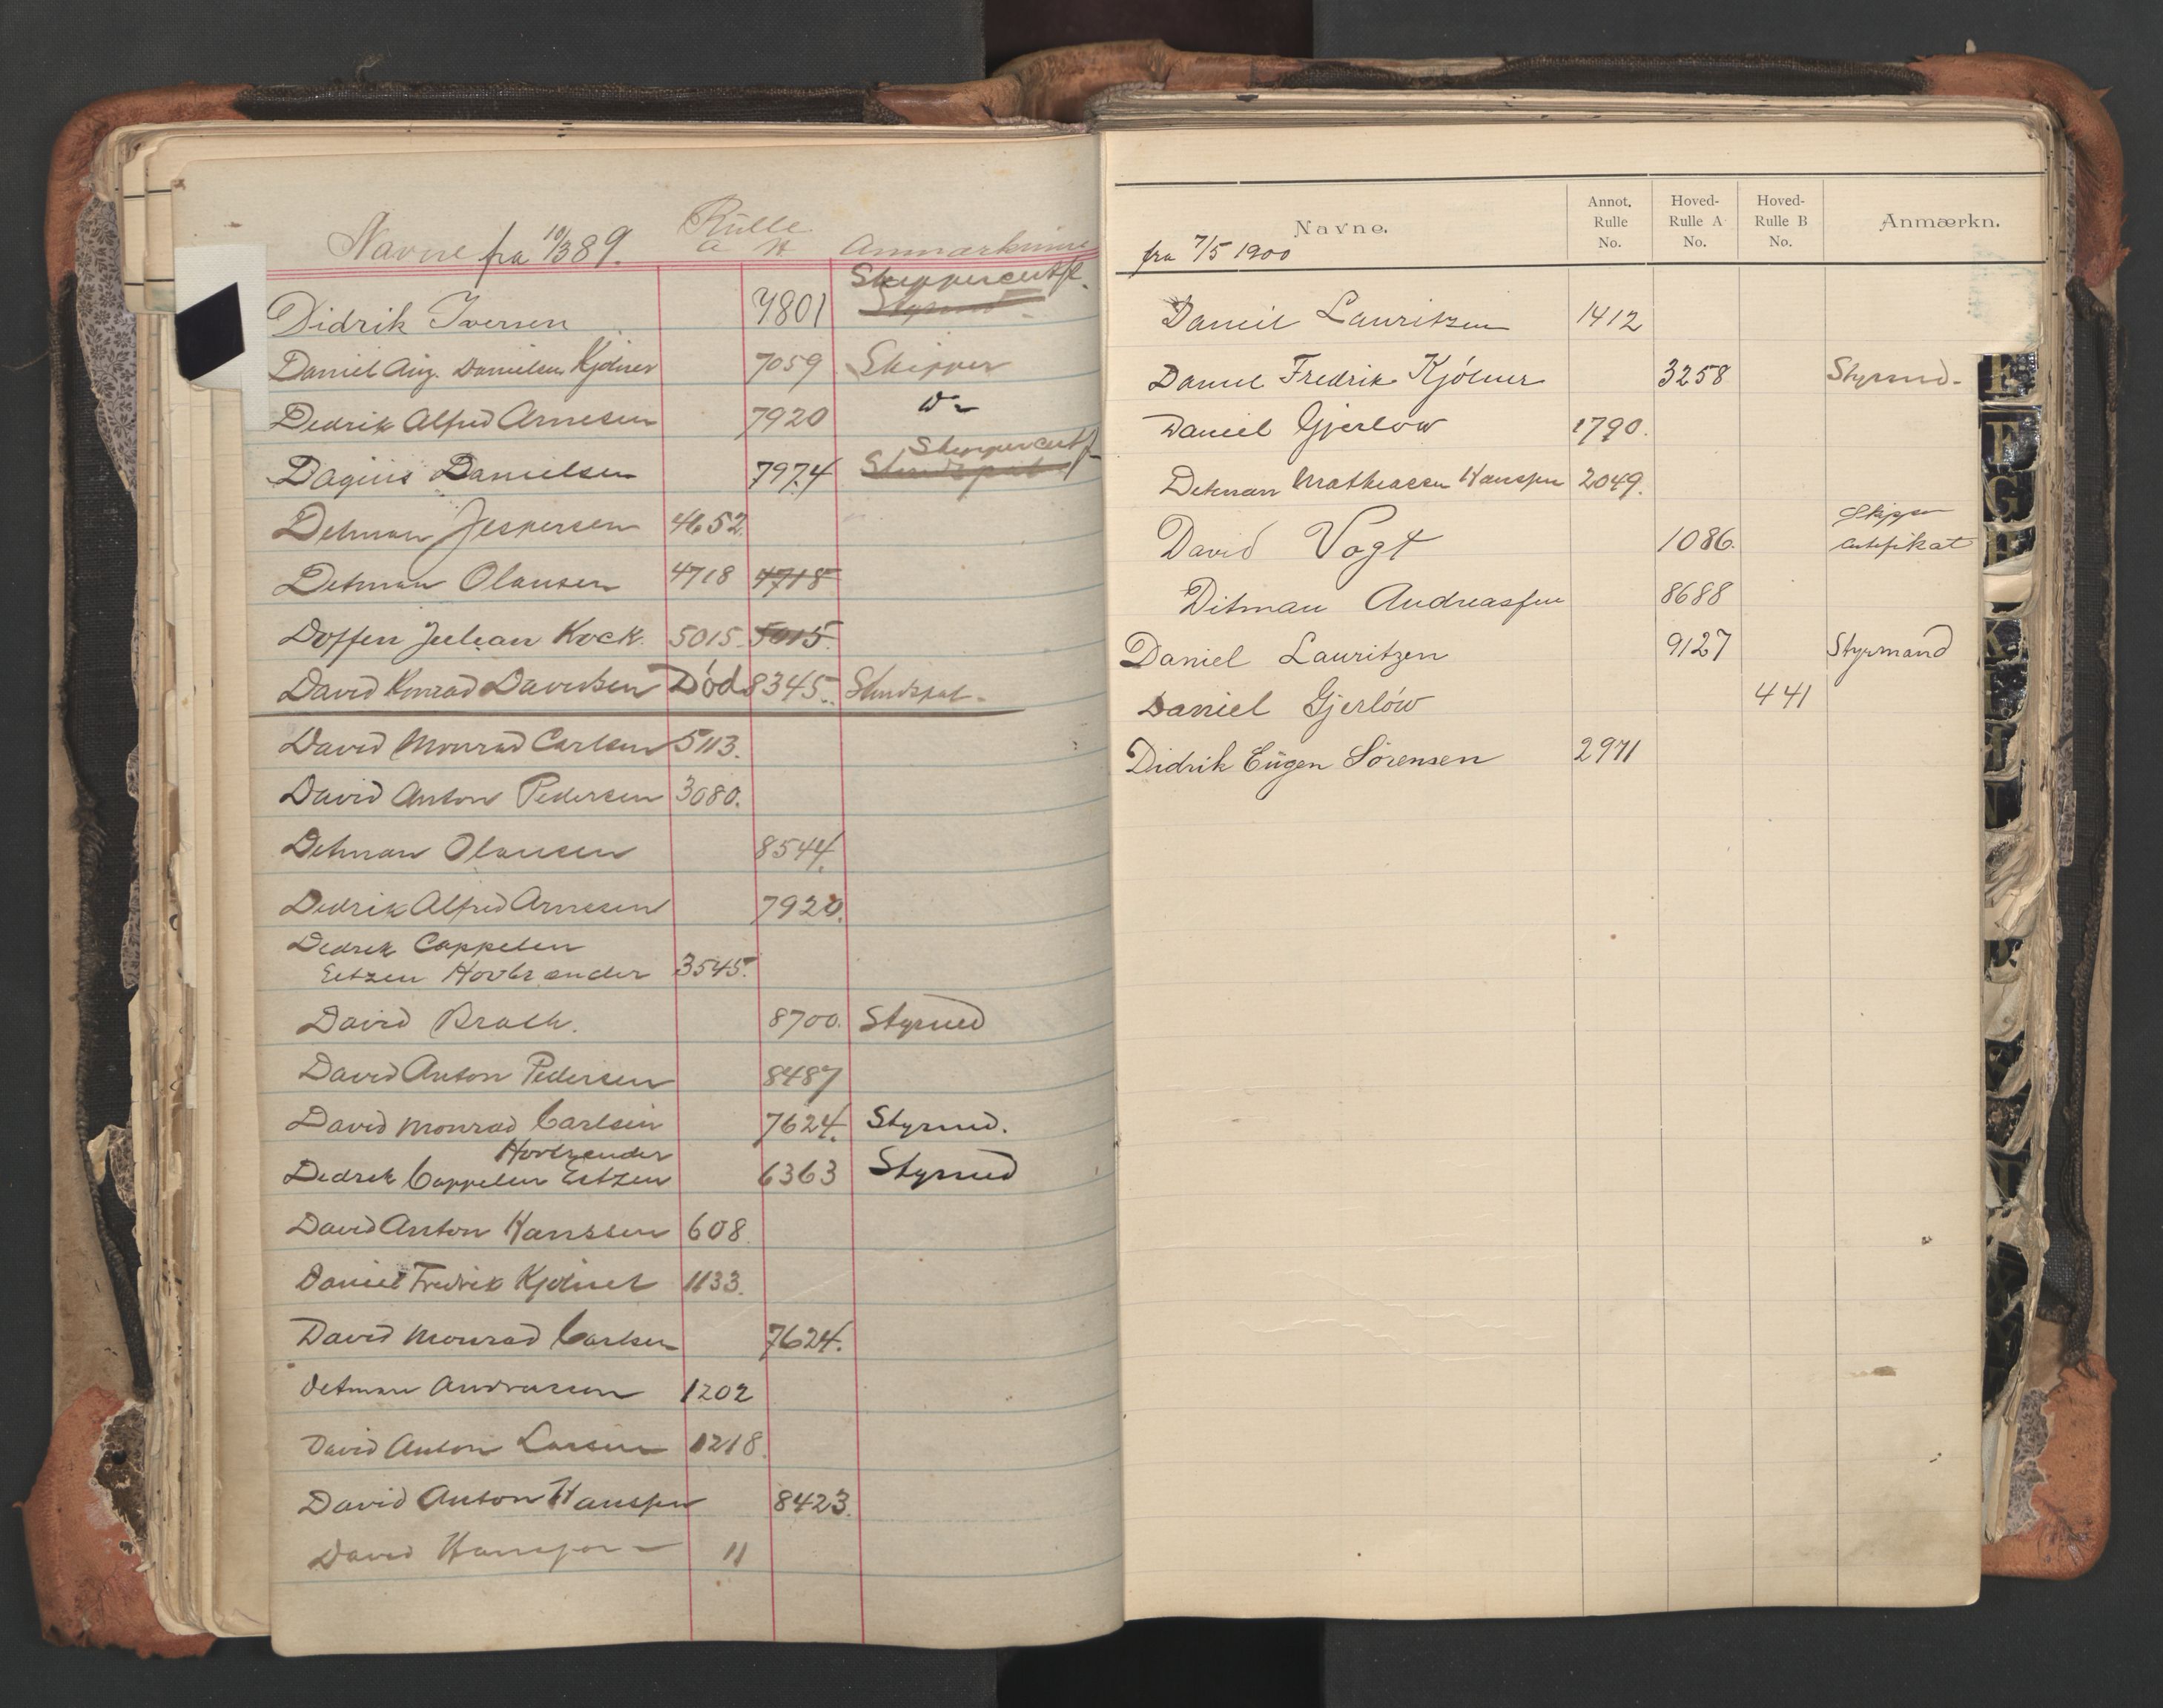 Navne fra 10/3 89. Rulle a H Anmærkning
Didrik Iversen 7801 Skippercertf. Styrmd
Daniel Aug. Danielsen Kjølner 7059 Skipper
Dedrik Alfred Arnesen 7920 Do
Dagius Danielsen 7974 Skippercertf
Detman Jespersen 4652.
Detman Olausen 4718 4718
Doffen Julian Kock. 5015. 5015.
David Konrad Davidsen Død 8345. Slindspat.
David Monrad Carlsen 5113.
David Anton Pedersen 3080.
Detman Olausen 8544.
Dedrik Alfred Arnesen 7920.
Dedrik Cappelen
Eitzen Hovbrænder 3545.
David Brath. 8700. Styrmd
David Anton Pedersen 8487
David Monrad Carlsen 7624. Styrmd.
Hovbrænder
Dedrik Cappelen Eitzen 6363 Styrmd
David Anton Hanssen 608.
Daniel Fredrik Kjølner 1133.
David Monrad Carlsen 7624.
Detman Andreasen 1202
David Anton Larsen 1218.
David Anton Hanssen 8423.
David Hanssen 11
Navne. Annot. Rulle No. Hoved-Rulle A No. Hoved-Rulle B No. Anmærkn.
fra 7/5 1900
Daniel Lauritzen 1412
Daniel Fredrik Kjølner 3258 Styrmd.
Daniel Gjerløw 1790.
Detman Mathiassen Hanssen 2049.
David Vogt 1086. Skipper
certifikat
Ditman Andreassen 8688
Daniel Lauritzen 9127 Styrmand
Daniel Gjerløw 441
Didrik Eugen Sørensen 2971
E
F
G
K
N